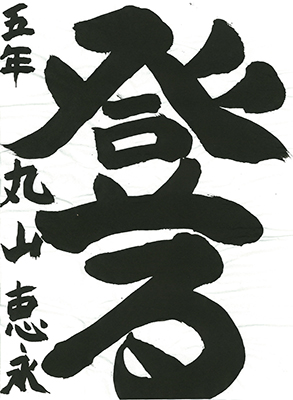 登る
五年 丸山恵永